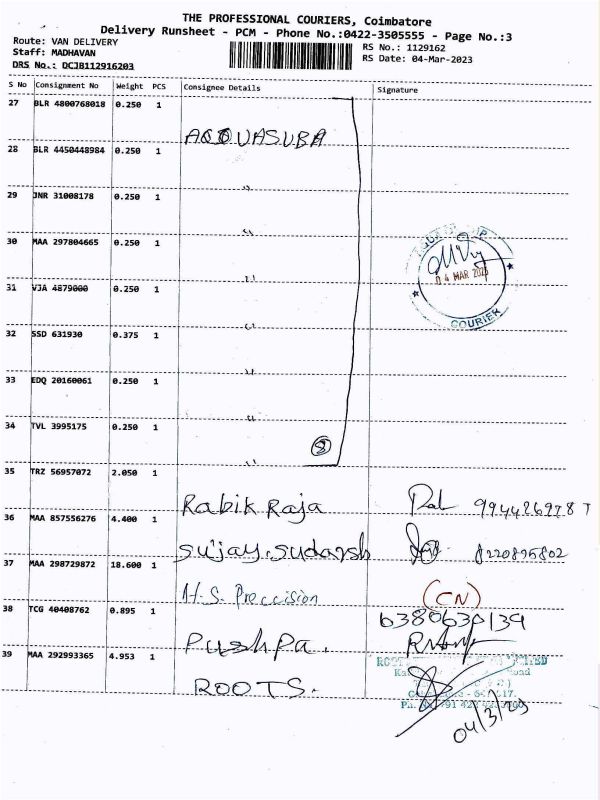 THE PROFESSIONAL COURIERS, Coimbatore
Delivery Runsheet - PCM - Phone No.:0422-3505555 - Page No.:3
Route: VAN DELIVERY
Staff: MADHAVAN
DRS No.: DCJB112916203
RS No.: 1129162
RS Date: 04-Mar-2023
S No Consignment No Weight PCS Consignee Details Signature
27 BLR 4800768018 0.250 1
ACQUASUBA
28 BLR 4450448984 0.250 1
"
29 JNR 31008178 0.250 1
"
30 MAA 297804665 0.250 1
"
31 VJA 4879000 0.250 1
"
04 MAR 2023
COURIER
32 SSD 631930 0.375 1
"
33 EDQ 20160061 0.250 1
"
34 TVL 3995175 0.250 1
"
8
35 TRZ 56957072 2.050 1
Rabik Raja
36 MAA 857556276 4.400 1
Sujay.Sudarsh
37 MAA 298729872 18.600 1
H.S. Preccision (CN)
38 TCG 40408762 0.895 1
6380630139
Pushpa.
39 MAA 292993365 4.953 1
ROOTS.
04/3/23